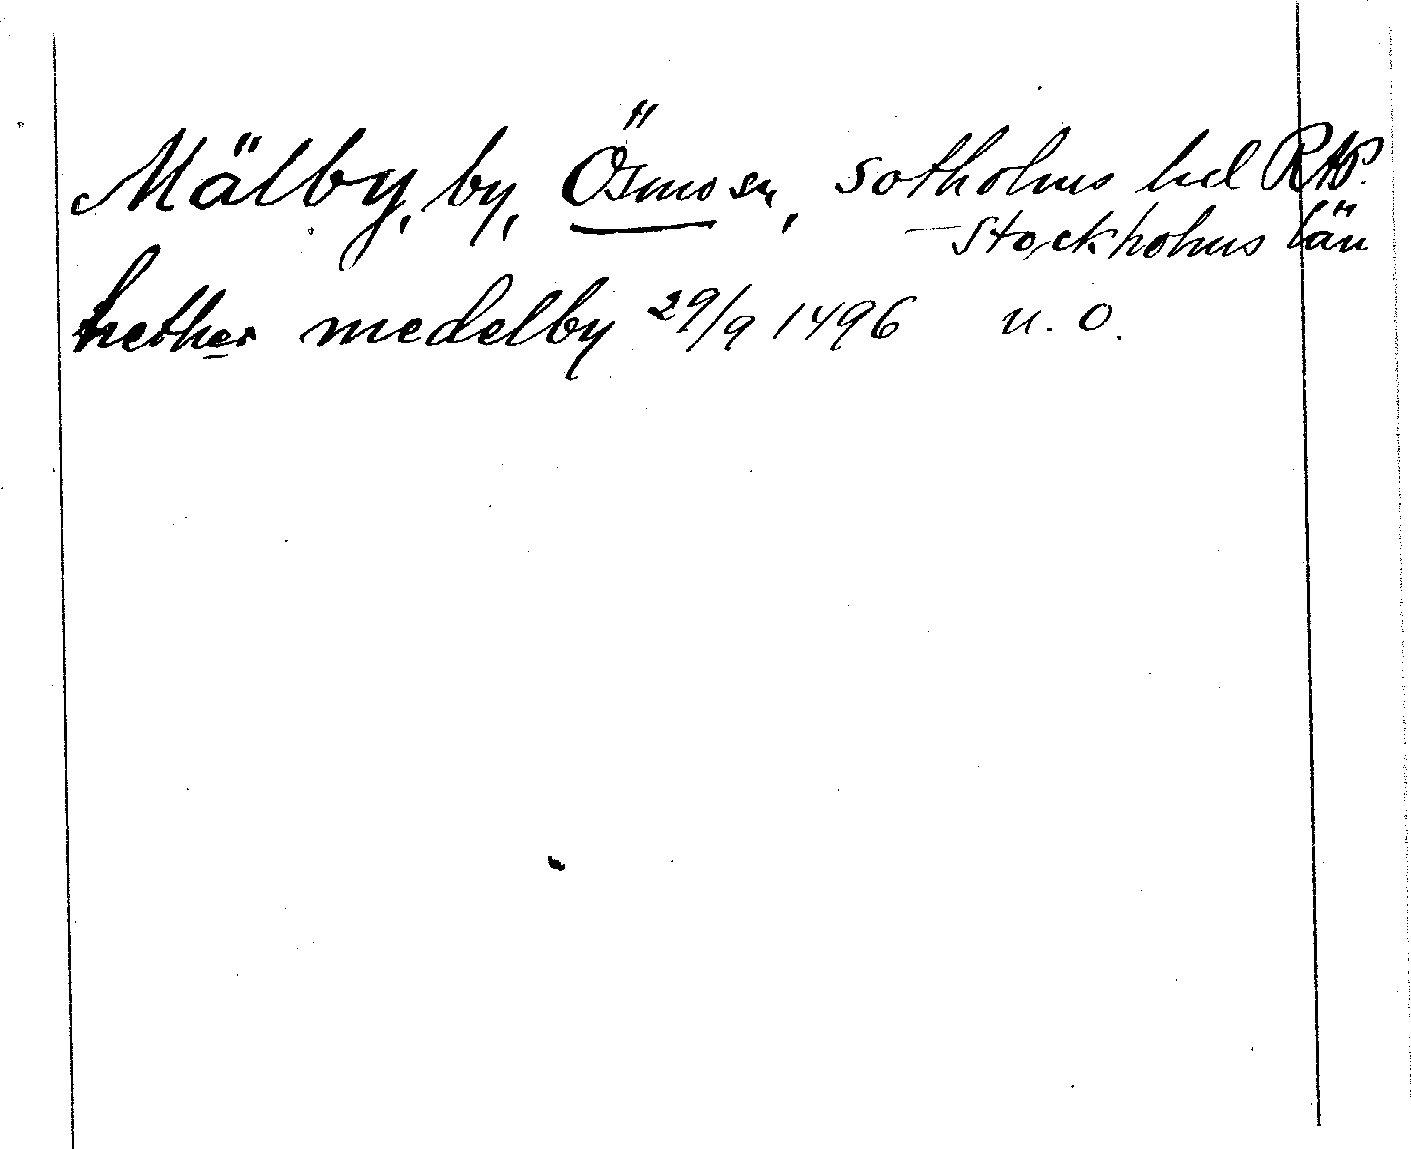 Mälby, by, Ösmo sn, Sotholms hd RAP.
Stockholms län
hether medelby 29/9 1496 n. O.